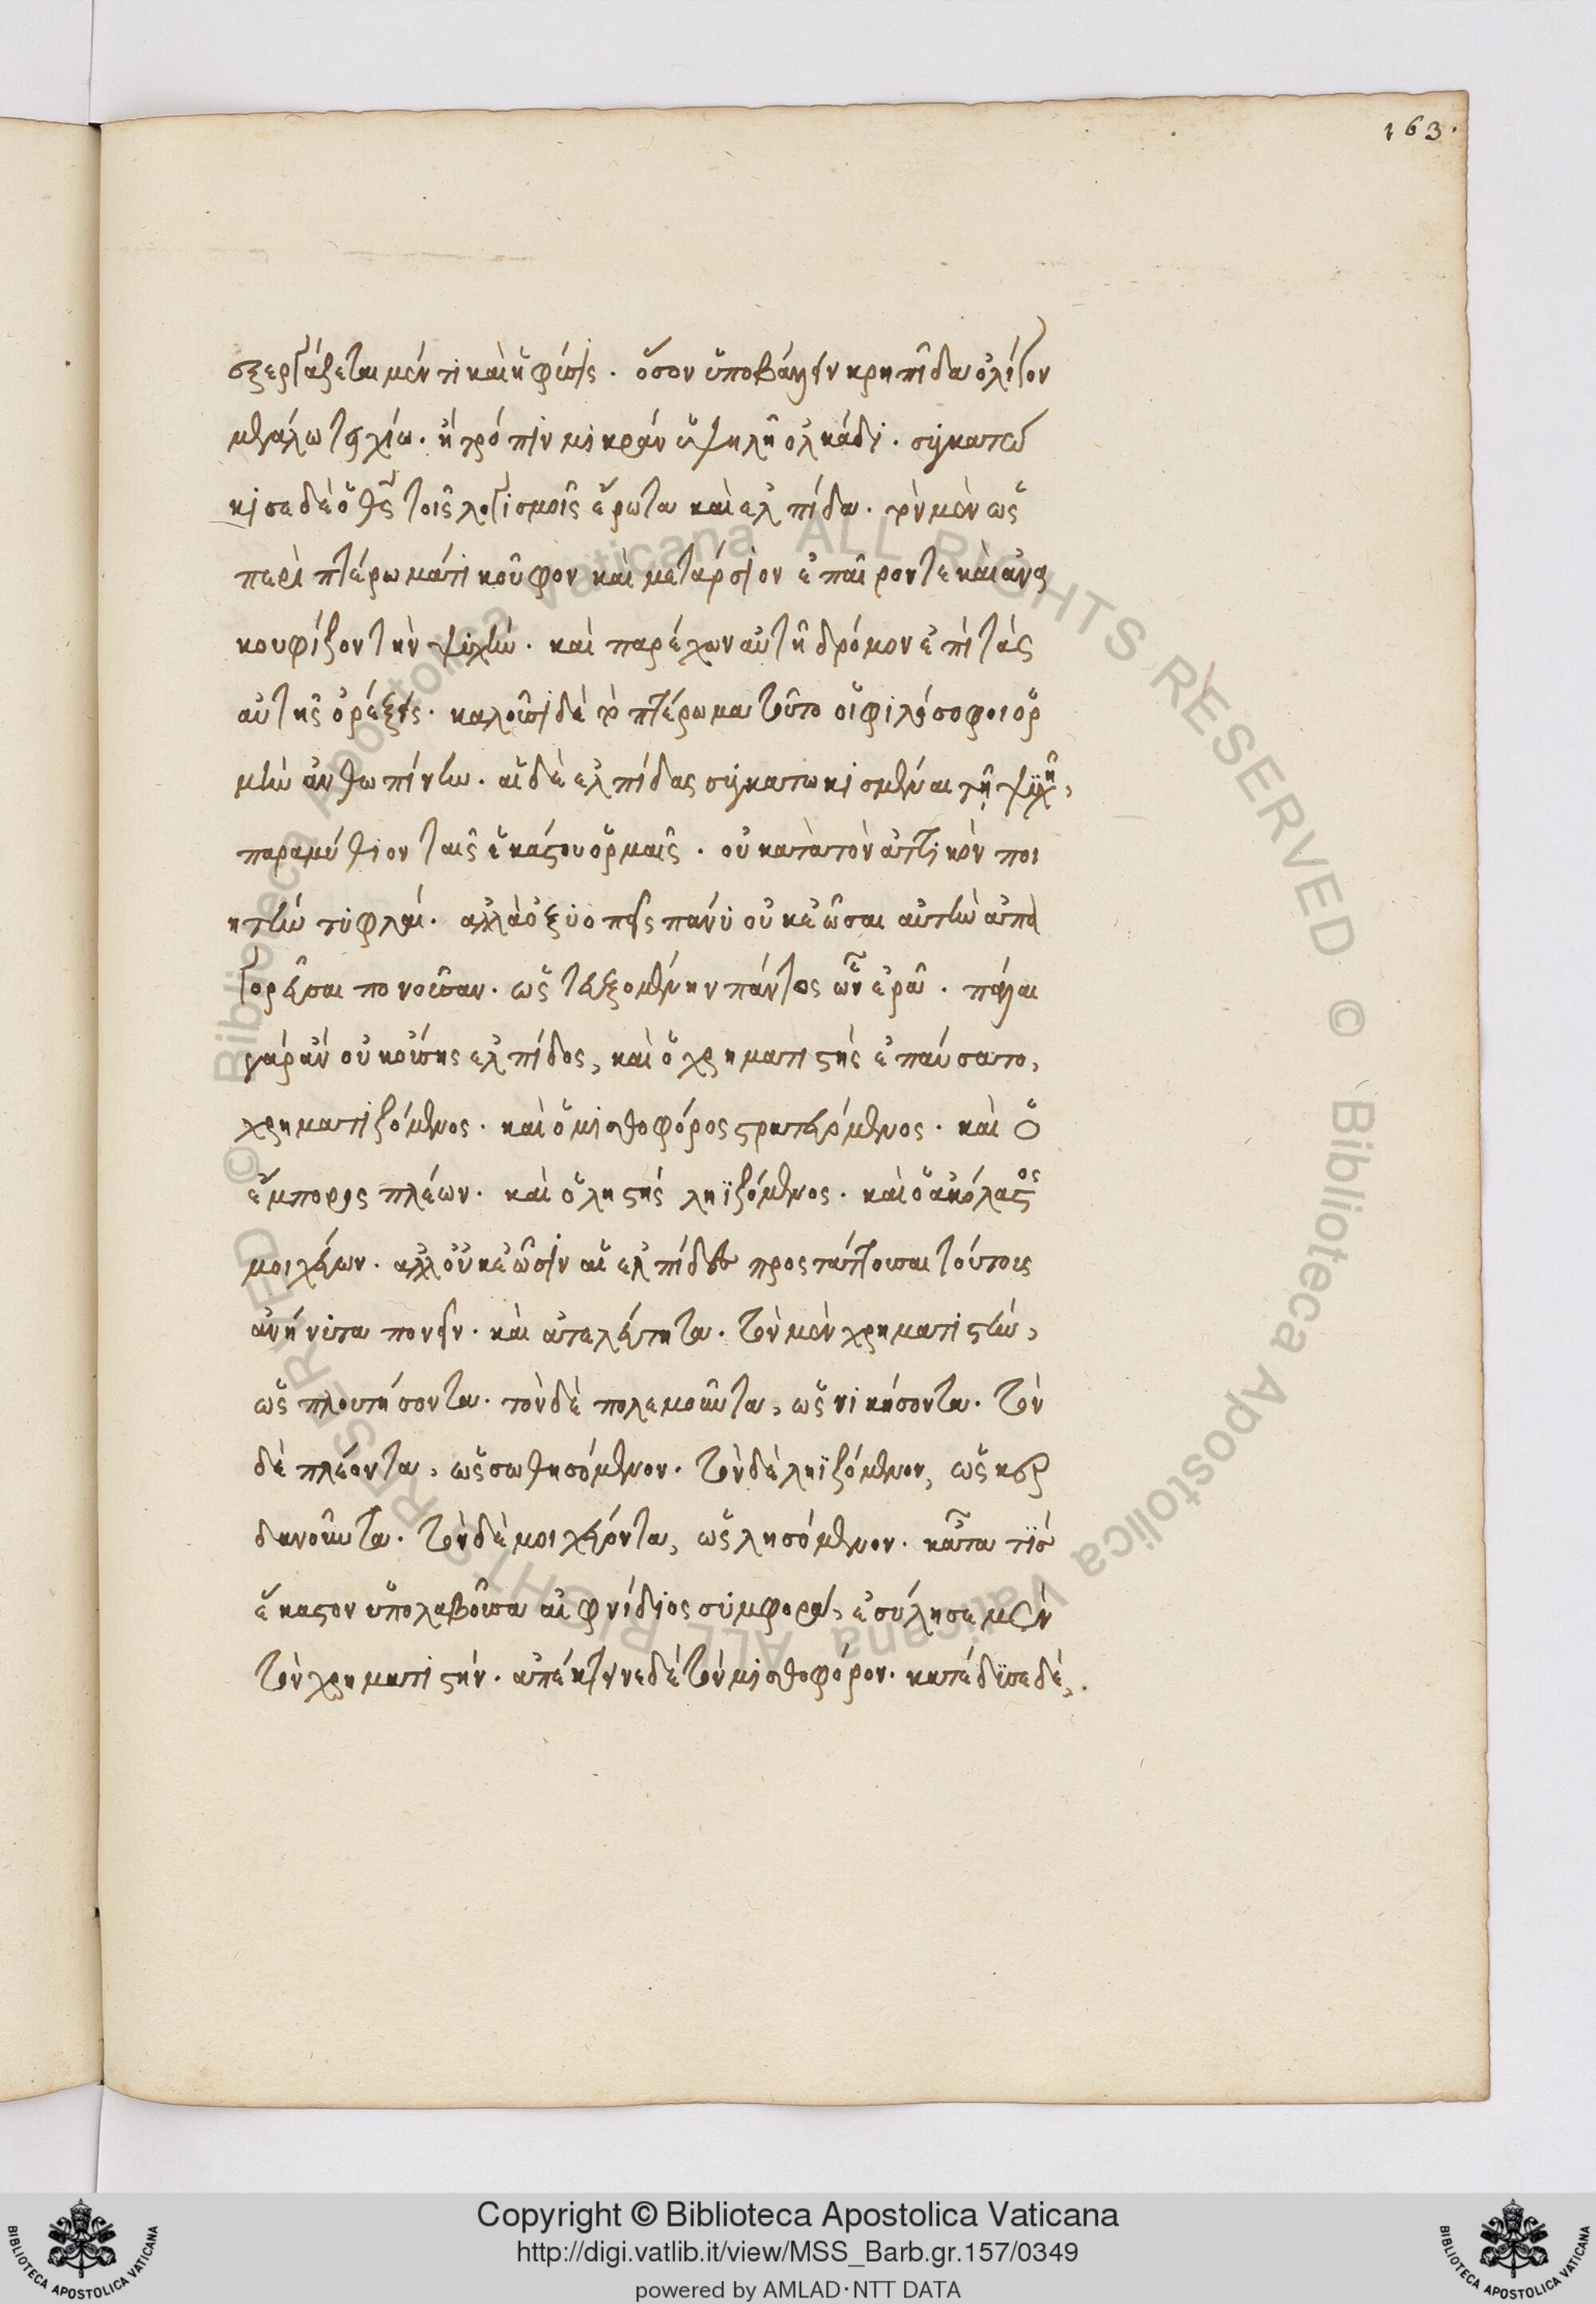 163.
συνεργάζεται μέν τι καὶ ἡ φύσις. ὅσον ὑποβάλλειν κρηπῖδα ὀλίγον
μεγάλω τειχίω. ἢ τρόπιν μικρὰν ὑψηλῆ ὁλκάδι. συγκατώ
κισε δὲ ὁ θεὸς τοῖς λογισμοῖς ἔρωτα καὶ ελπίδα. τὸν μὲν ὡς
περὶ πτέρωμάτι κοῦφον καὶ μετάρσιον ἐπαῖρον τε καὶ ἀνα
κουφίζον τὴν ψυχὴν. καὶ παρέχων αὐτῆ δρόμον ἐπὶ τὰς
αὐτῆς ὀρέξεις. καλοῦσι δὲ τὸ πτέρωμα τοῦτο οἱ φιλόσοφοι ὁρ
μὴν ἀνθρωπίνην. αἱ δὲ ελπίδες συγκατωκισμέναι τῆ ψυχῆ,
παραμύθιον ταῖς ἑκάστου ὁρμαῖς. οὐ κατὰ τὸν ἀττικὸν ποι
ητὴν τυφλαί. αλλὰ ὀξυοπεῖς πάνυ οὐκ ἐῶσαι αὐτὴν ἀπα
γορεῦσαι πονοῦσαν. ὡς τευξομένην πάντως ὧν ἐρᾶ. πάλαι
γάρ ἂν οὐκ οὔσης ελπίδος, καὶ ὁ χρηματιστὴς ἐπαύσατο,
χρηματιζόμενος. καὶ ὁ μισθοφόρος στρατευόμενος. καὶ ὁ
ἔμπορος πλέων. καὶ ὁ ληστὴς ληϊζόμενος. καὶ ὁ ακόλαστος
μοιχεύων. αλλ οὐκ ἐῶσιν αἱ ελπίδες προστάττουσαι τούτοις
ἀνήνυτα πονεῖν. καὶ ἀτελεύτητα. τὸν μὲν χρηματιστὴν,
ὡς πλουτήσοντα. τὸν δὲ πολεμοῦντα, ὡς νικήσοντα. τὸν
δὲ πλέοντα, ὡς σωθησόμενον. τὸν δὲ ληϊζόμενον, ὡς κερ
δανοῦντα. τὸν δὲ μοιχεύοντα, ὡς λησόμενον. κᾆτα
ἕκαστον ὑπολαβοῦσα αἰφνίδιος συμφορὰ, ἐσύλησε μὲν
τὸν χρηματιστήν. ἀπέκτεινε δὲ τὸν μισθοφόρον. κατέδυσε δὲ,.
Copyright © Biblioteca Apostolica Vaticana
http://digi.vatlib.it/view/MSS_Barb.gr.157/0349
powered by AMLAD·NTT DATA
BIBLIOTECA APOSTOLICA VATICANA
BIBLIOTECA APOSTOLICA VATICANA
© Biblioteca Apostolica Vaticana ALL RIGHTS RESERVED © Biblioteca Apostolica Vaticana ALL RIGHTS RESERVED